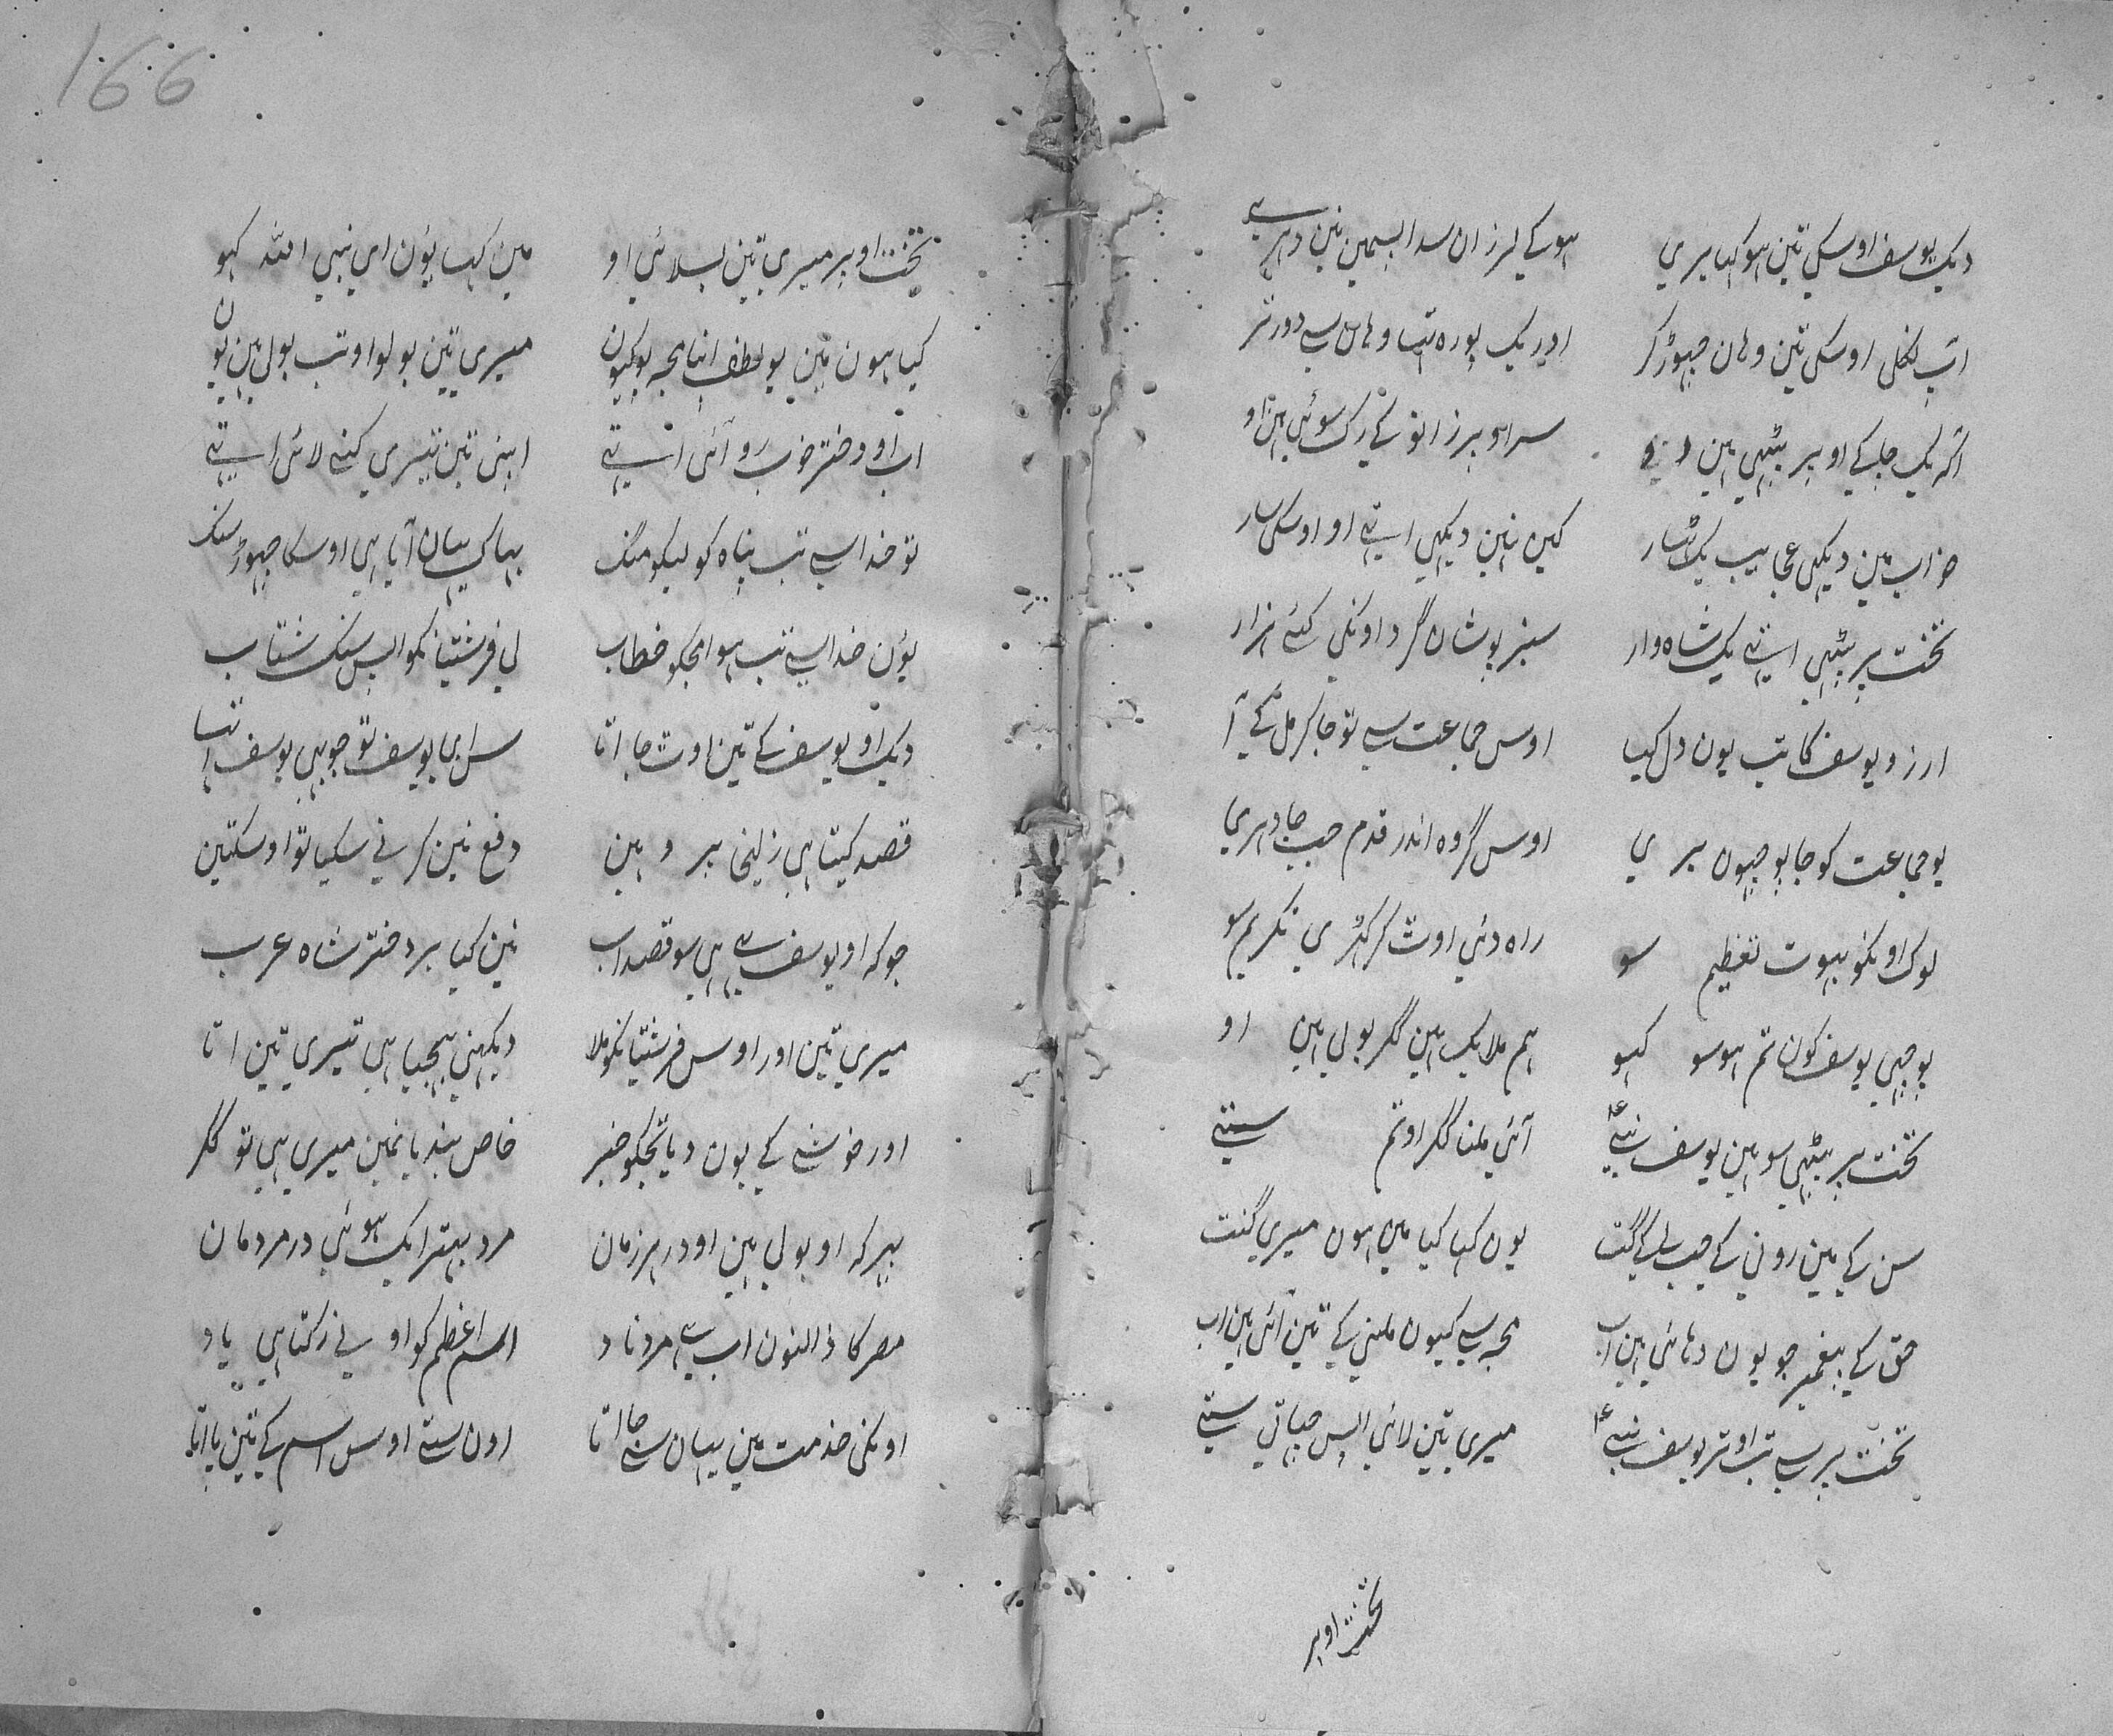 166
دیک یوسف اوسکی تین ہو کہا بری ہوکے لرزان سدا لسمین نین دہرے
اپ نکلی اوسکی تین وہان چہوڑ کر اور یک پورہ تہا وہان سے دور تر
اکہ یک جا کے اوپر بیٹہی ہین سر او پر زانو کے رک سوئی ہین او
خواب مین دیکہی عجایب یک کین نین دیکہی اتہی او اوسکی سار
تخت پر بیٹہی اتہی یک شاہ وار سبز پوشان گرد اونکی کئی ہزار
ارزو یوسف کا تب یون دل کیا اوس جماعت سے تو جا کر مل کے آ
یو جماعت کو جا پوچہون بری اوس گروہ اندر قدم جب جا دہری
لوک اونکو بہوت تعظیم سو راہ دئی اوٹ کر کہڑی تکریم سو
پوچہی یوسف کون تم ہو سو کہو ہم ملایک ہین گکر بولی ہین او
تخت پر بیٹہی سو ہین یوسف نبیؑ آئی ملنا گکر او تم ستی
سن کے مین رونی کے جب لے گت یون کہا کیا مین ہون میری گنت
حق کے پیغمبر جو یون دہائی ہین اب مجہ سے کیون ملنی کے تین آئی ہین اب
تخت پر سے تب اوتر یوسف نبیؑ میری تین لائی اپس چہاتی ستی
تخت اوپر
تخت اوپر میری تین بسلائی او مین کہا یون ای نبی اللہ کہو
کیا ہون مین یو لطف اتنا مجہ پو کیون میری تین بولو او تب بولی ہین یون
اب او دختر خوب رو آئی اتہی اپنی تین تیری کنے لائی اتہی
تو خدا سے تب پناہ کو لیکو منگ بہاک یہان آیا ہی اوسکا چہوڑ سنگ
یون خدا سے تب ہوا مجکو خطاب لی فرشتیانکو اپس سنک شتاب
دیک او یوسف کے تین اوٹ جا اتا سرای یوسف تو جو ہی یوسف اتہا
قصد کیتا ہی زلیخی پر و مین دفع نین کرنے سکیا تو اوسکتین
جو کہ او یوسف ہے ہی سو قصد اب نین کیا بر دختر شاہ عرب
میری تین اور اوس فرشتیانکو ملا دیکہنی بہیجیا ہی تیری تین اتا
اور خوشی کے یون دیا تجکو خبر خاص بندیا نمین میری ہی تو گکر
پہر کہ او بولی ہین او در ہر زمان مرد بہتر ایک ہوئی در مردمان
مصر کا ذالنون اب ہے مرد ناد اسم اعظم کو او نے رکتا ہی یاد
اونکی خدمت مین یہان سے جا اتا اون ستے اوس اسم کے تین پا اتا